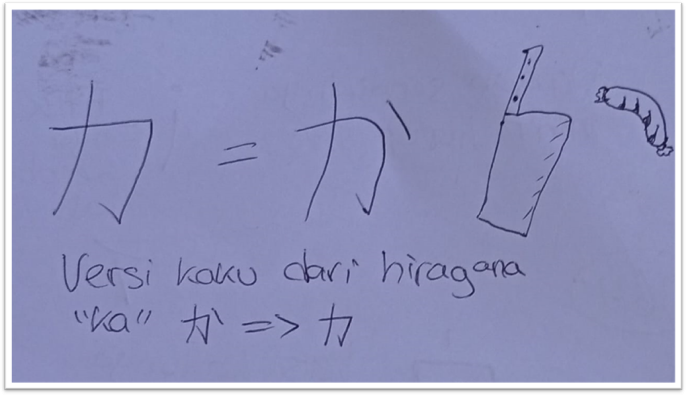 カ = か
Versi kaku dari hiragana
"ka" か => カ